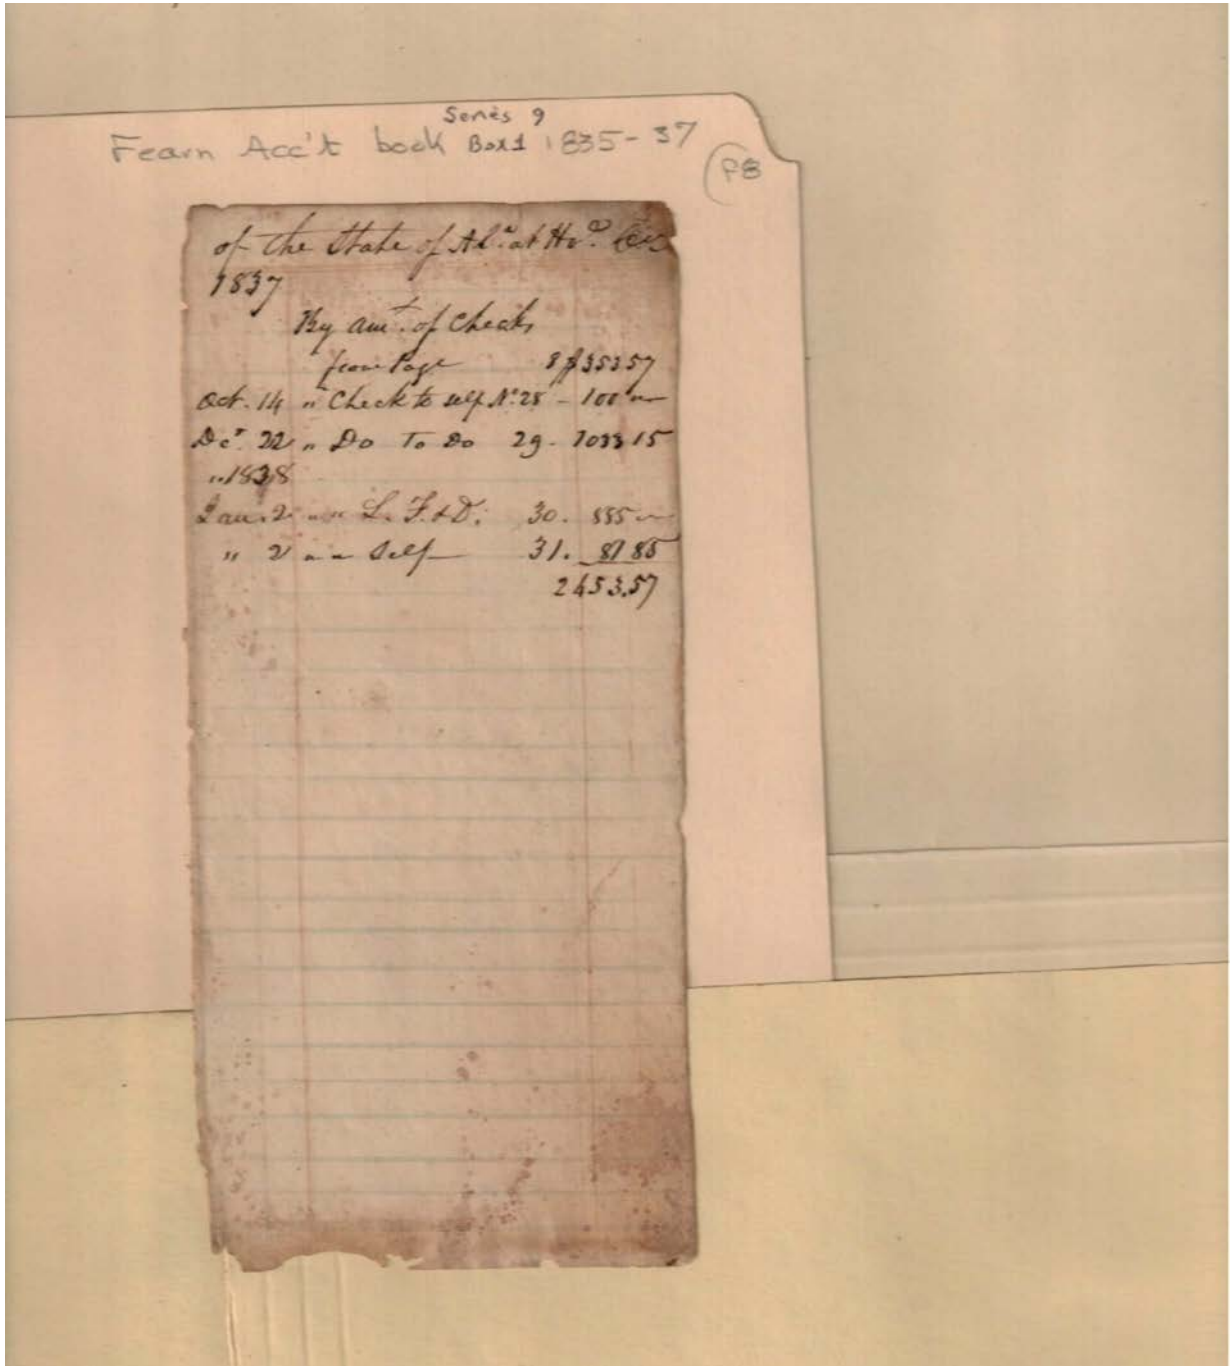 Series 9
Fearn Acc't book Box 1 1835-37
P8
of the State of Ala. at Hve.
1837
By amt. of Checks
from Page 8 $353 57
Oct. 14 " Check to self No. 28 - 100 "
Dec. 22 " Do To Do 29 - 1033 15
" 1838
Jan. 2 " " L. F. & D. 30. 885 "
" 2 " " Self 31. 81 85
2453.57